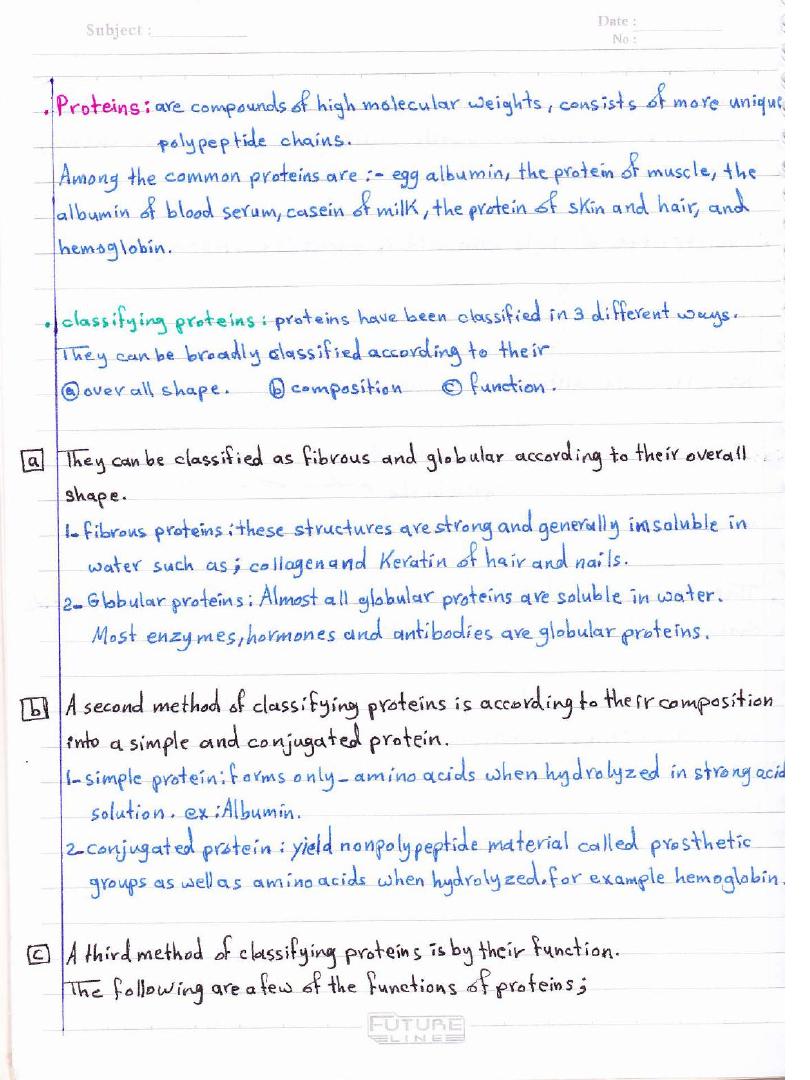 Subject :
Date :
No :
. Proteins : are compounds of high molecular weights, consists of more unique
polypeptide chains.
Among the common proteins are :- egg albumin, the protein of muscle, the
albumin of blood serum, casein of milk, the protein of skin and hair, and
hemoglobin.
. classifying proteins : proteins have been classified in 3 different ways.
They can be broadly classified according to their
ⓐ over all shape. ⓑ composition ⓒ function.
a They can be classified as fibrous and globular according to their overall
shape.
1- fibrous proteins : these structures are strong and generally insoluble in
water such as ; collagen and Keratin of hair and nails.
2- Globular proteins : Almost all globular proteins are soluble in water.
Most enzymes, hormones and antibodies are globular proteins.
b A second method of classifying proteins is according to their composition
into a simple and conjugated protein.
1- simple protein : forms only - amino acids when hydrolyzed in strong acid
solution. ex : Albumin.
2- conjugated protein : yield nonpolypeptide material called prosthetic
groups as well as amino acids when hydrolyzed. for example hemoglobin.
c A third method of classifying proteins is by their function.
The following are a few of the functions of proteins ;
FUTURE
LINE